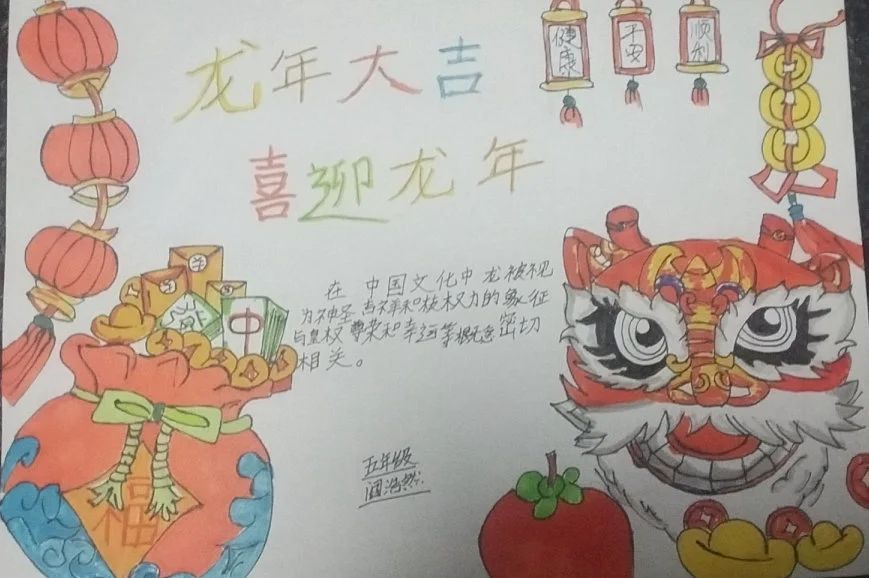 龙年大吉
健康
平安
顺利
喜迎龙年
在中国文化中龙被视
为神圣吉祥和权力的象征
与皇权尊荣和幸运等概念密切
相关。
中
福
五年级
浩然